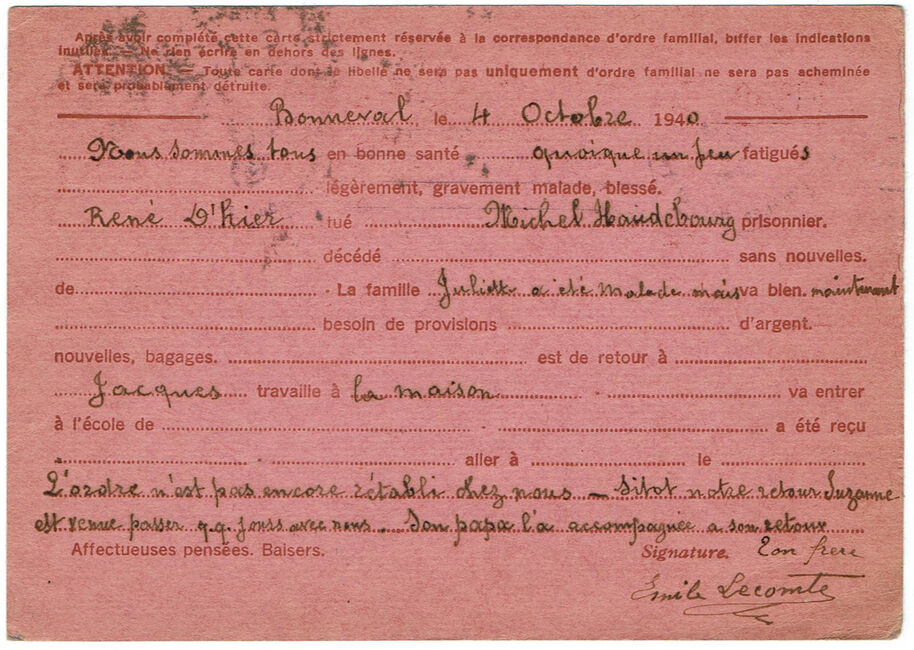 Après avoir complété cette carte strictement réservée à la correspondance d'ordre familial, biffer les indications
inutiles. — Ne rien écrire en dehors des lignes.
ATTENTION. — Toute carte dont le libellé ne sera pas uniquement d'ordre familial ne sera pas acheminée
et sera probablement détruite.
Bonneval, le 4 Octobre 1940
Nous sommes tous en bonne santé quoique un peu fatigués
légèrement, gravement malade, blessé.
René D'hier tué Michel Haudebourg prisonnier.
décédé sans nouvelles.
de La famille Juliette a été malade mais va bien. maintenant
besoin de provisions d'argent.
nouvelles, bagages. est de retour à
Jacques travaille à la maison va entrer
à l'école de a été reçu
aller à le
L'ordre n'est pas encore rétabli chez nous — Sitot notre retour Suzanne
est venue passer q.q. jours avec nous. Son papa l'a accompagnée a son retour
Affectueuses pensées. Baisers. Signature. Ton frère
Emile Lecomte